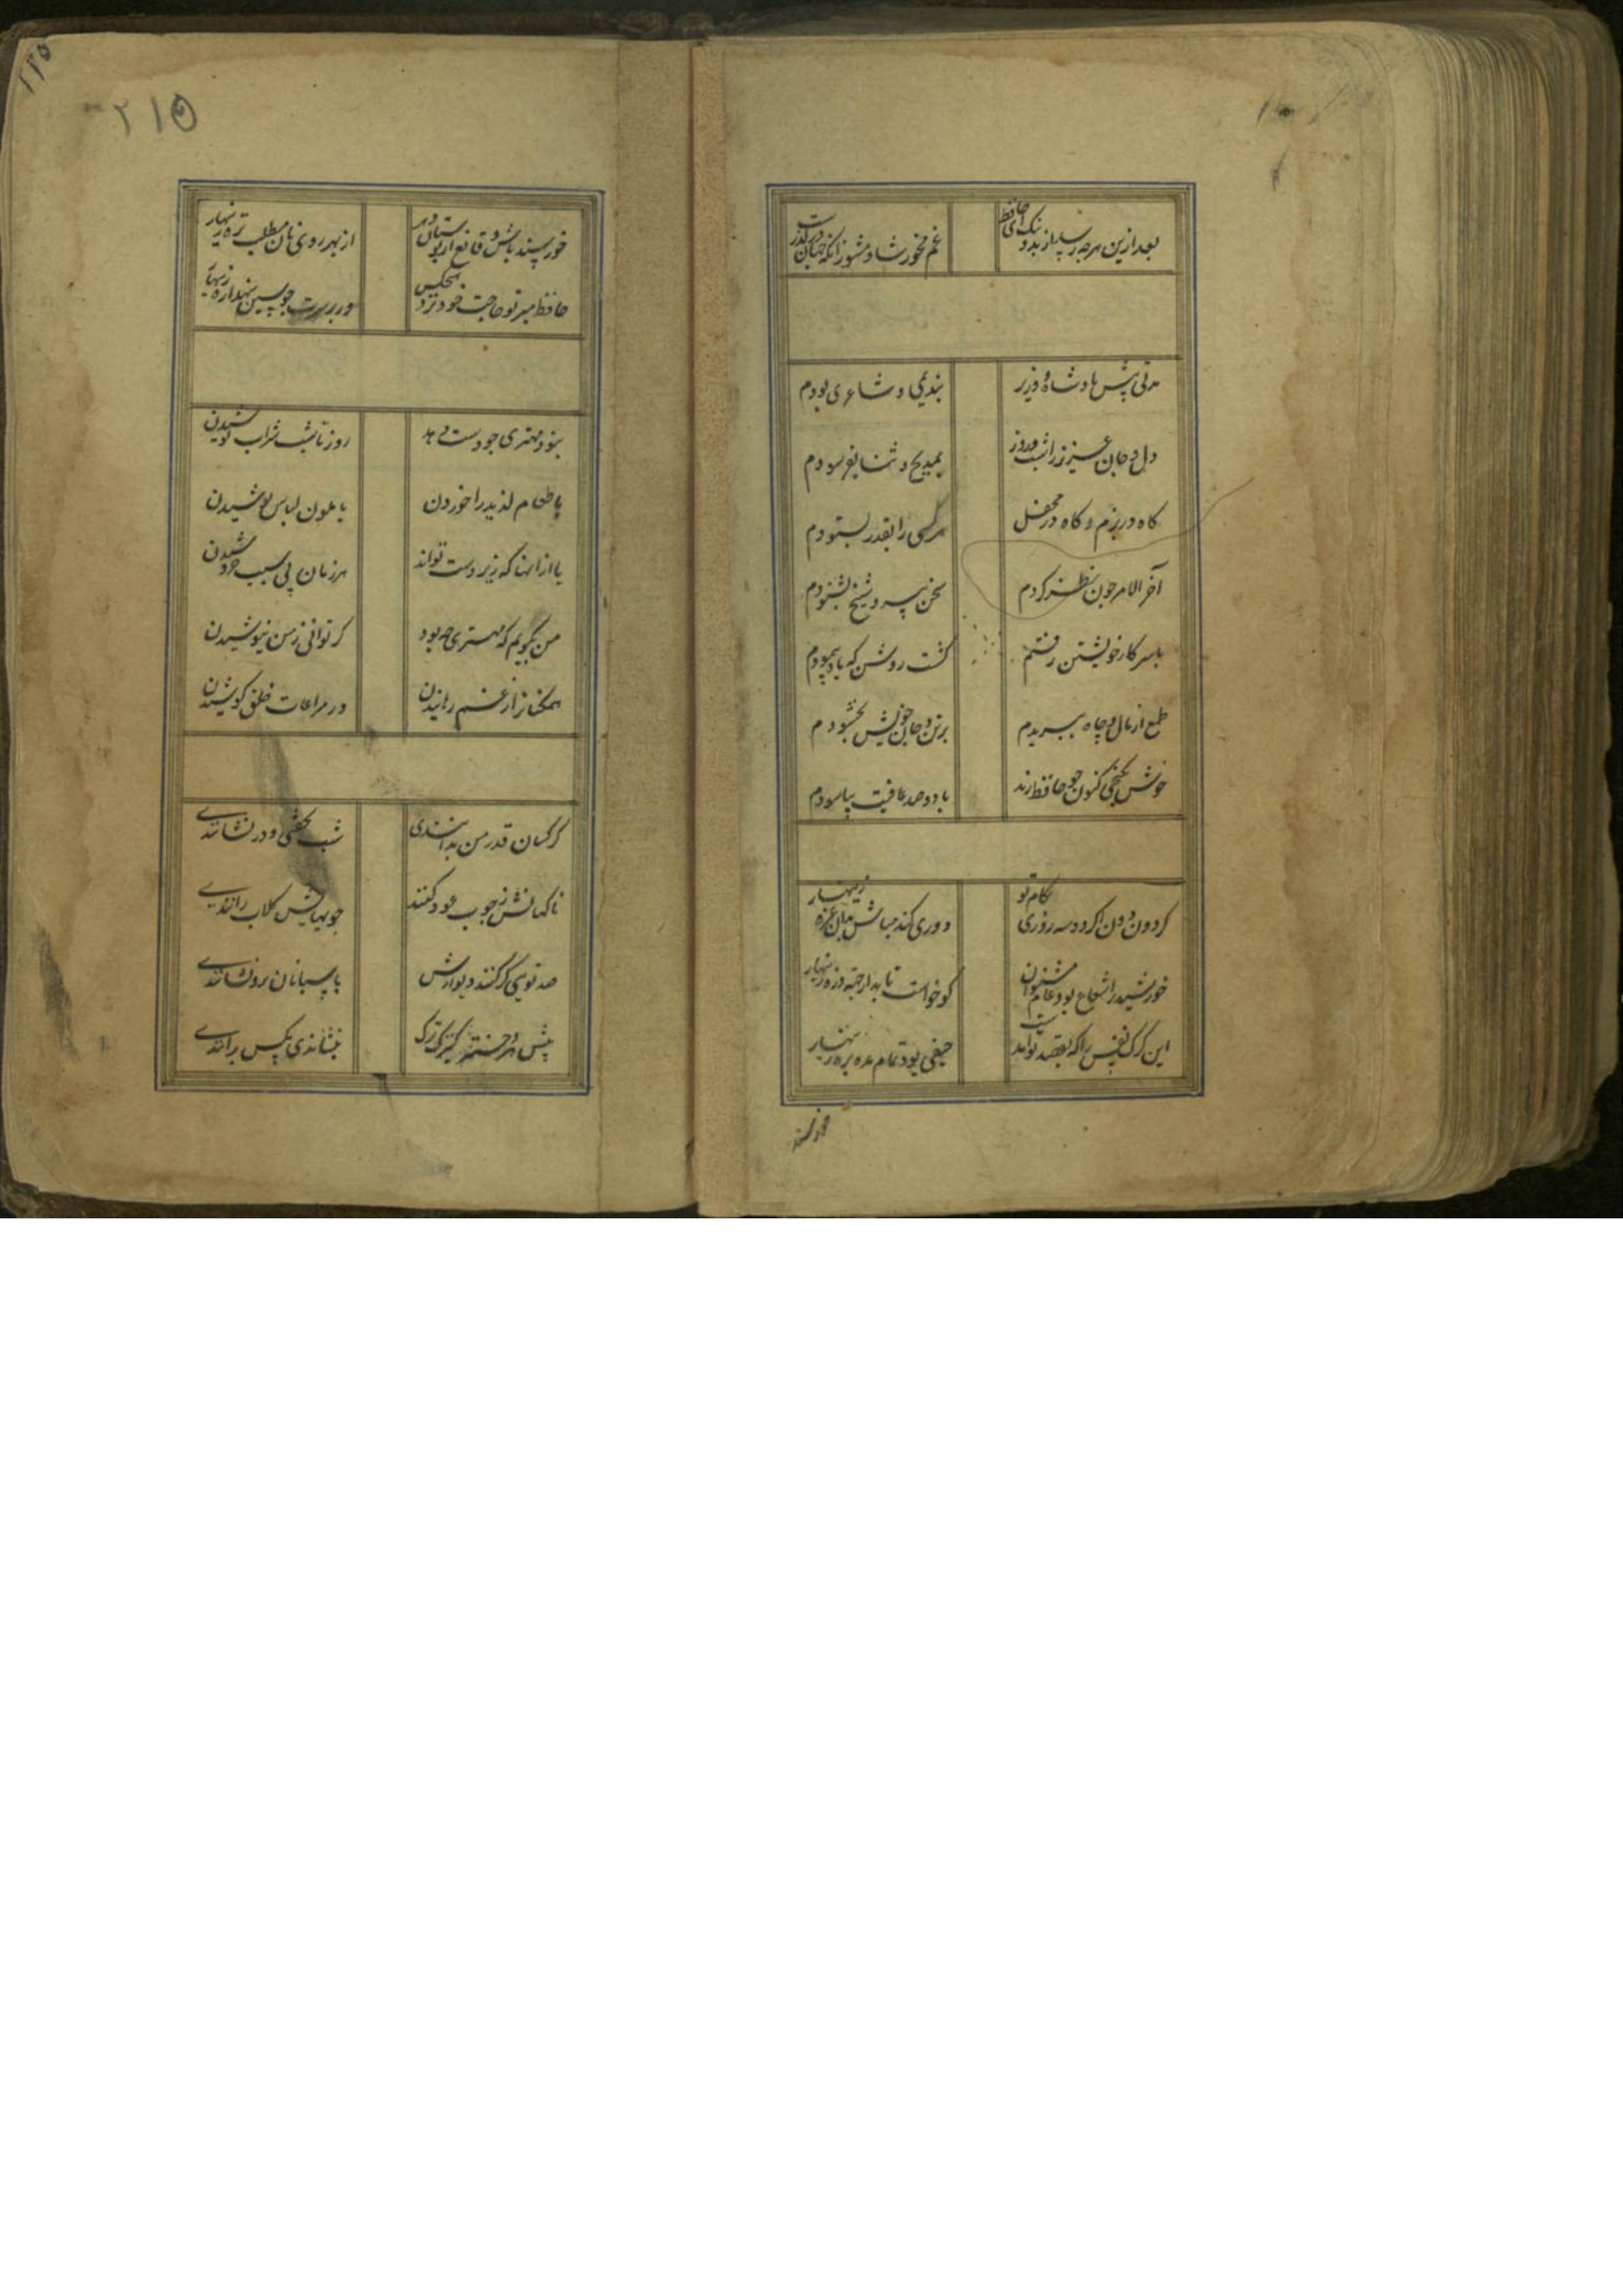 بعد ازین هرچه رسد از بد و نیک ای حافظ
غم مخور شاد مشو زانکه جهان در گذرست
مدتی پیش پادشاه و وزیر
بندیمی و شاعری بودم
دل و جان عزیز را شب و روز
بمدیح و ثنا بفرسودم
گاه در بزم و گاه در محفل
هر کسی را بقدر بستودم
آخر الامر چون نظر کردم
سخن پیر و شیخ بشنودم
با سر کار خویشتن رفتم
گشت روشن که باد پیمودم
طمع از مال و جاه ببریدم
بر تن و جان خویش بخشودم
خوش بکنجی کنون چو حافظ رند
با دو صد عافیت بیاسودم
کردون دون اگر دو سه روزی بکام تو
دوری کند مباش بدان غره زینهار
خورشید را شعاع بود عام مشنوان
کو خواست تابد از جهة ذره زینهار
این گرگ نفس را که بقصد تو
حیفی بود تمام مده بره زینهار
خورسند
٢١٥
خورسند باش و قانع از بوستان دهر
از بهر روی نان مطلب تره زینهار
حافظ مبر تو حاجت خود نزد هیچکس
ور بر سرت چو سین نهد اره زینهار
نبود مهتری چو دست دهد
روز تا شب شراب نوشیدن
یا طعام لذیذ را خوردن
یا ملون لباس پوشیدن
یا از آنها که زیر دست تواند
هر زمان بی سبب خروشیدن
من بگویم که مهتری چه بود
گر توانی ز من نیوشیدن
همکنانرا ز غم رهانیدن
در مراعات خلق کوشیدن
گر کسان قدر من بدانندی
شب نخفتی و در نشانندی
تاکهانش ز چوب عود کنند
جویهایش گلاب رانندی
صد توی گر کنند دیوارش
پاسبانان برو نشانندی
پیش هر کنیزکی ترک
بنشاندی مگس برانندی